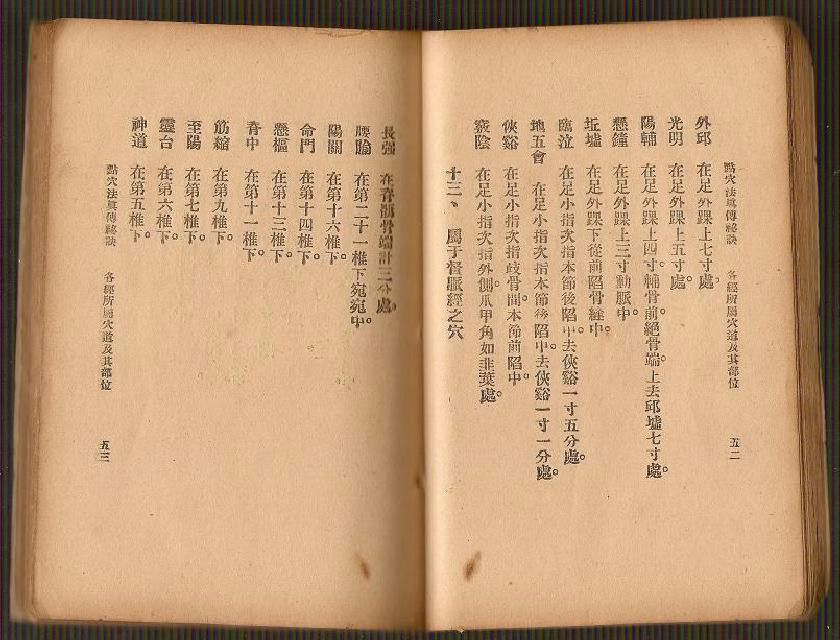 點穴法眞傳秘訣　各經所屬穴道及其部位　五二
外邱　在足外踝上七寸處。
光明　在足外踝上五寸處。
陽輔　在足外踝上四寸。輔骨前。絕骨端。上去邱墟七寸處。
懸鐘　在足外踝上三寸動脈中。
坵墟　在足外踝下從前陷骨縫中。
臨泣　在足小指次指本節後陷中。去俠谿一寸五分處。
地五會　在足小指次指本節後陷中。去俠谿一寸一分處。
俠谿　在足小指次指歧骨間。本節前陷中。
竅陰　在足小指次指外側。爪甲角如韭葉處。
十三、屬于督脈經之穴
長强　在脊骶骨端計三分處。
腰腧　在第二十一椎下宛宛中。
陽關　在第十六椎下。
命門　在第十四椎下。
懸樞　在第十三椎下。
脊中　在第十一椎下。
筋縮　在第九椎下。
至陽　在第七椎下。
靈台　在第六椎下。
神道　在第五椎下。
點穴法眞傳秘訣　各經所屬穴道及其部位　五三